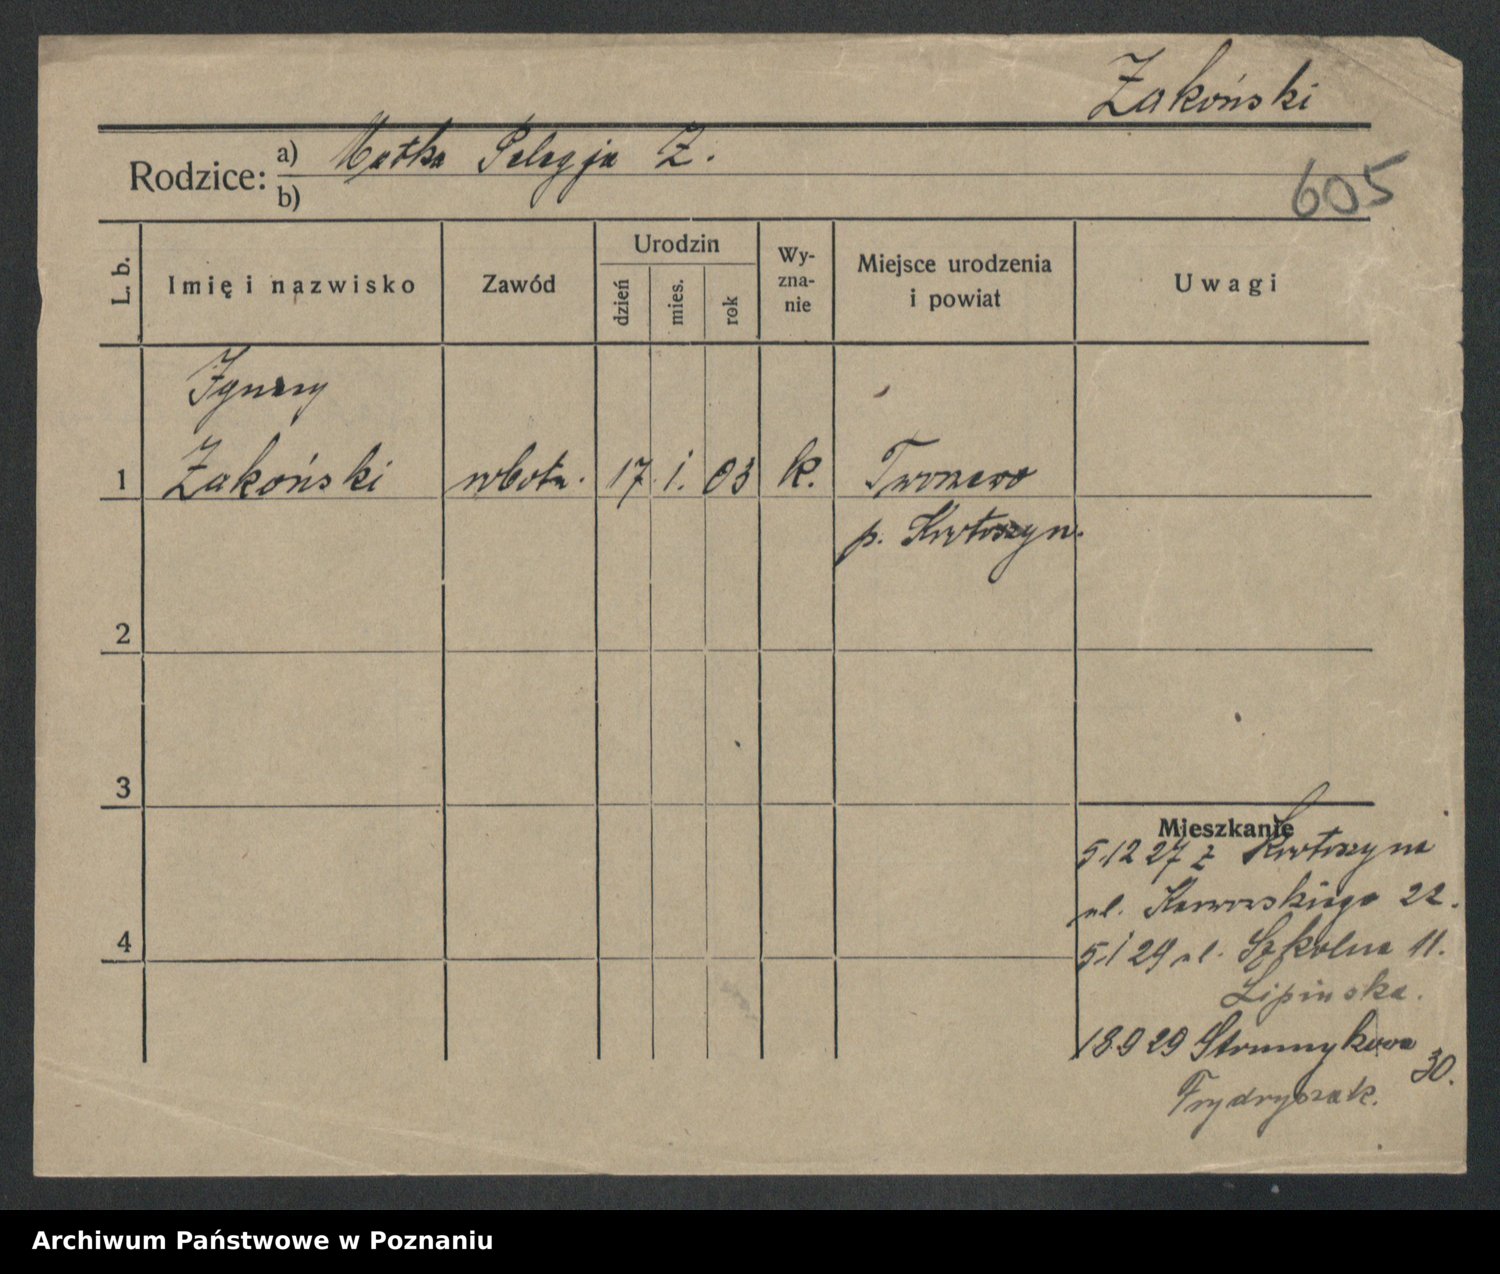 Żakoński
Rodzice: a) Matka Pelagja Ż.
b)
605
L. b.
Imię i nazwisko
Zawód
Urodzin
dzień
mies.
rok
Wy-
zna-
nie
Miejsce urodzenia
i powiat
Uwagi
Ignacy
1 Żakoński robotn. 17. 1. 03 k.
p. Krotoszyn.
2
3
4
Mieszkanie
5.12 27 z Krotoszyna
ul. 22.
5.1 29 ul. Szkolna 11.
Lipinska.
18 9 29 Strumykowa
30.
Frydryszak.
Archiwum Państwowe w Poznaniu